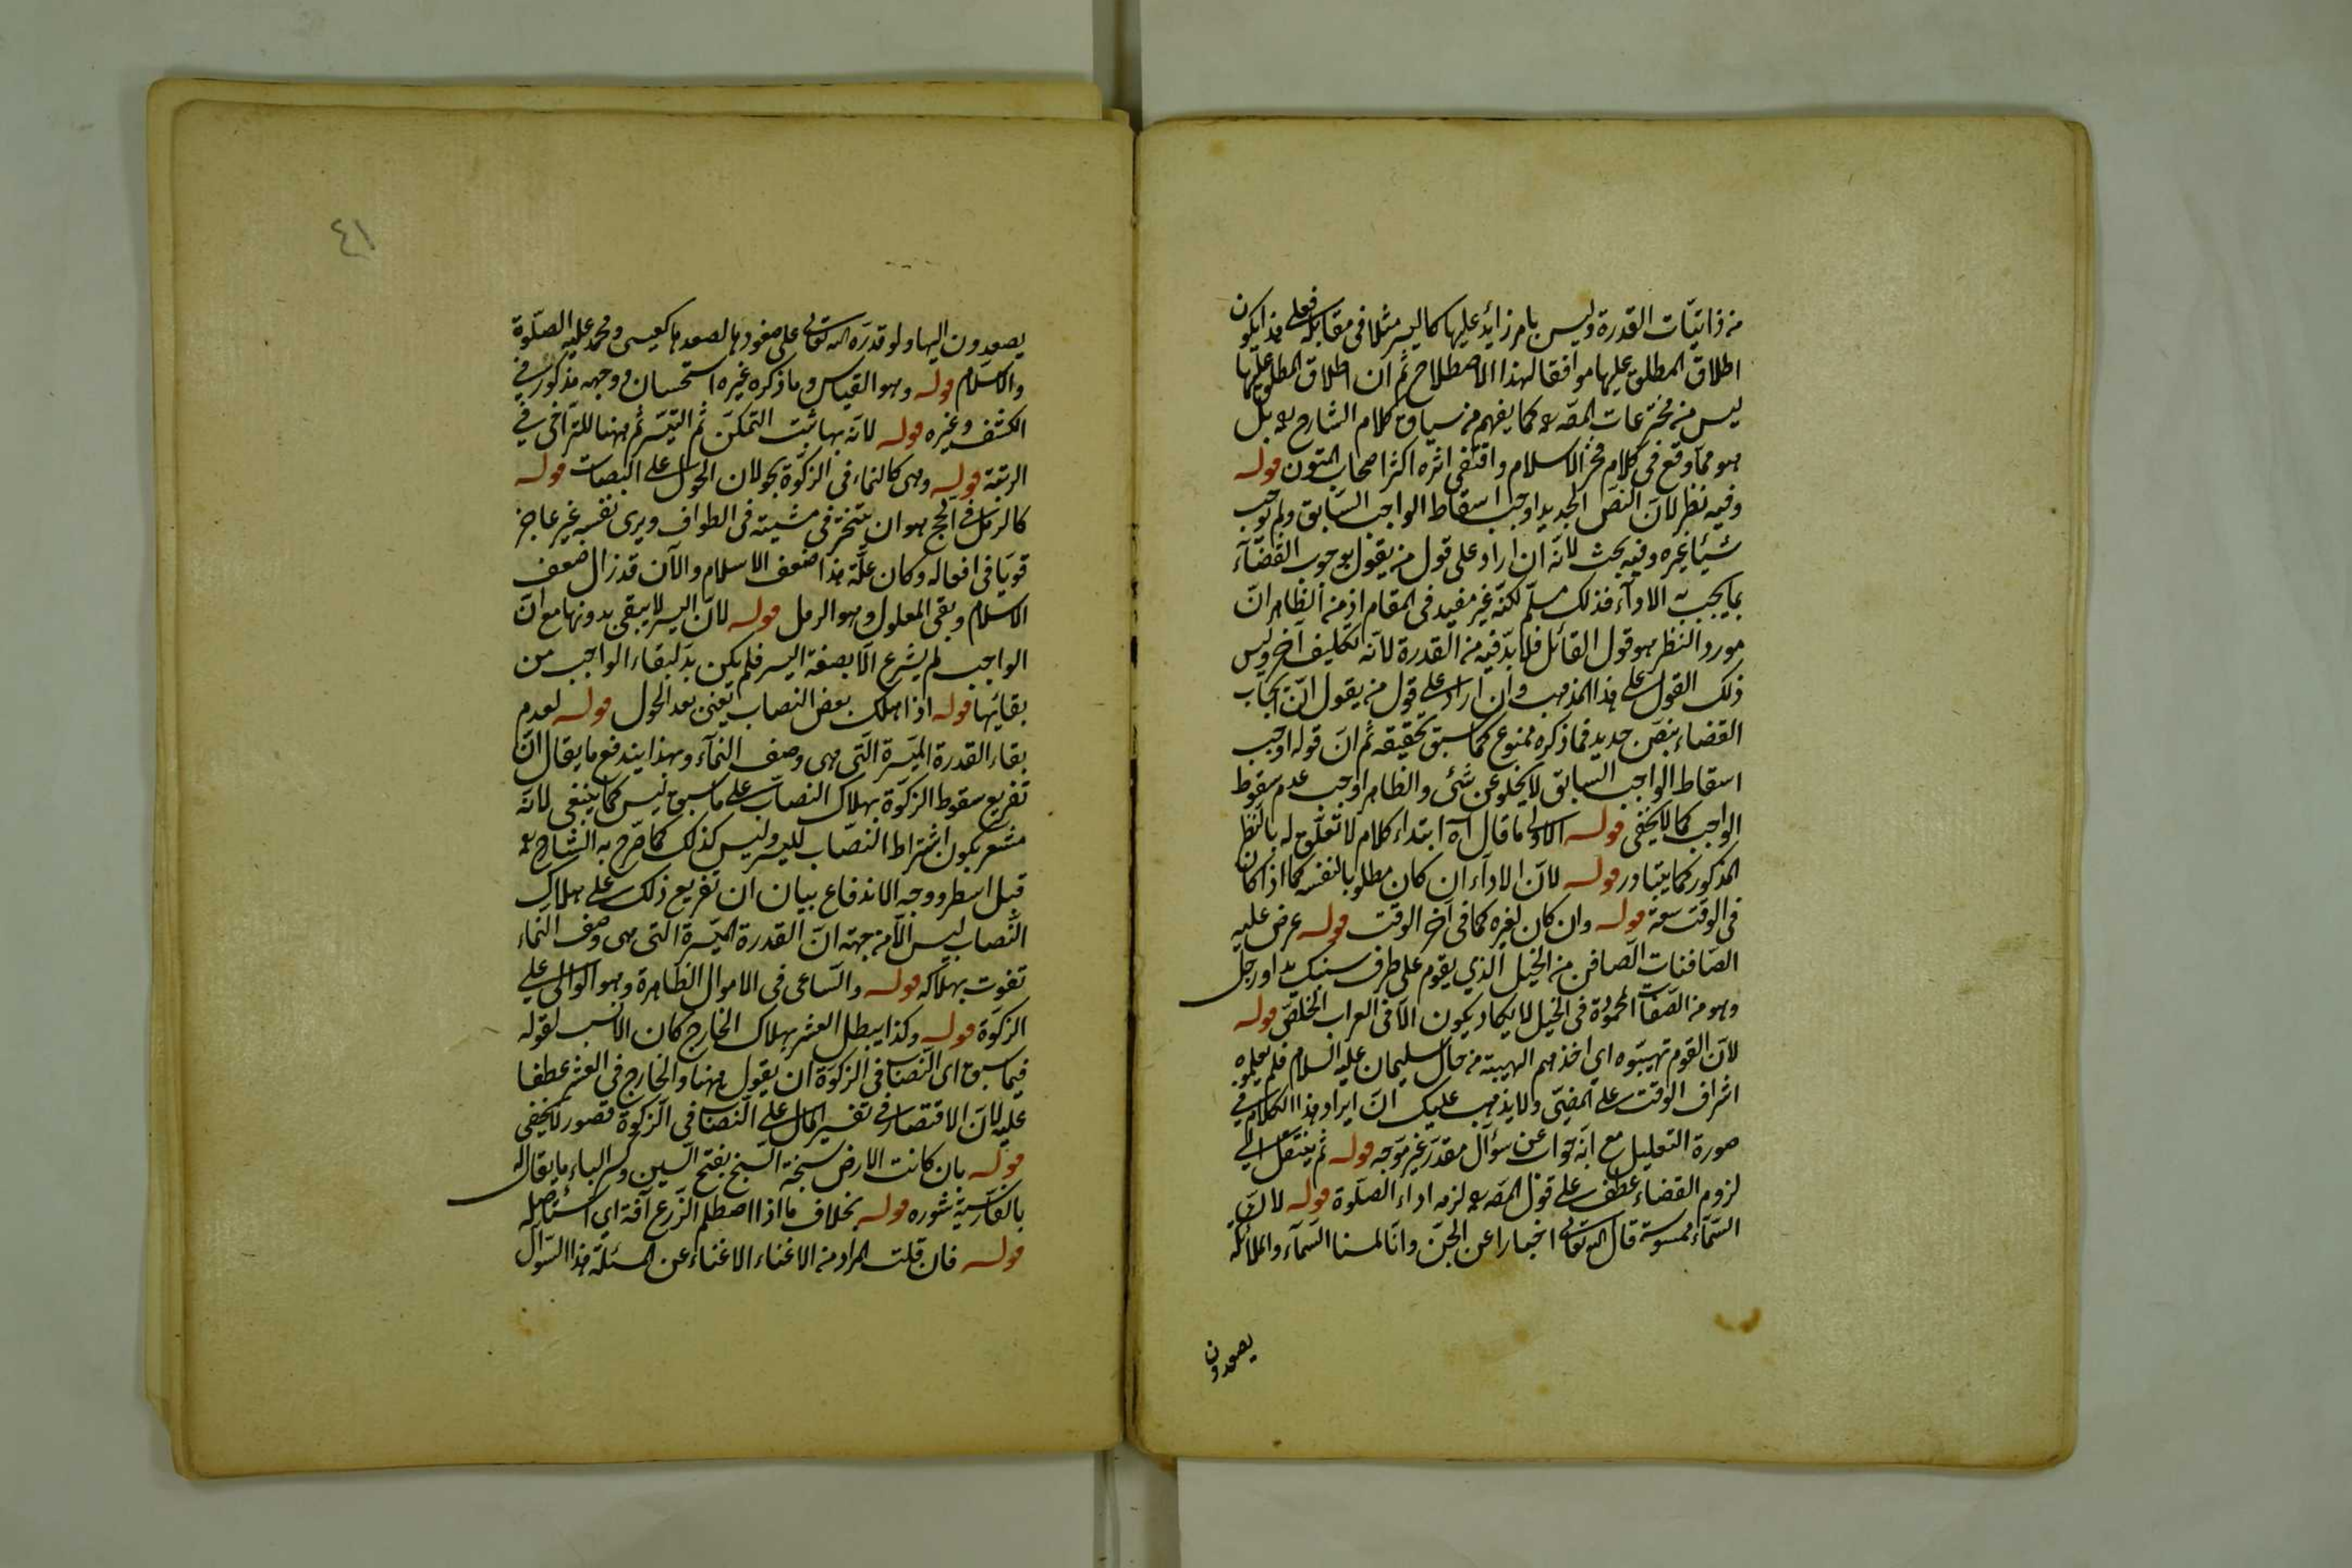 من ذاتيات القدرة وليس بامر زائد عليها كاليسر مثلا في مقابله فعلى هذا يكون
اطلاق المطلق عليها موافقا لهذا الاصطلاح ثم ان اطلاق المطلق عليها
ليس من مخترعات المصه ره كما يفهم من سياق كلام الشارح ره بل
هو مما وقع في كلام فخر الاسلام واقتفى اثره اكثر اصحاب المتون قوله
وفيه نظر لان النص الجديد اوجب اسقاط الواجب السابق ولم يوجب
شيئا غيره وفيه بحث لانه ان اراد على قول من يقول بوجوب القضاء
بما يجب به الاداء فذلك مسلم لكنه غير مفيد في المقام اذ من الظاهر ان
مورد النظر هو قول القائل فلا بد فيه من القدرة لانه تكليف آخر وليس
ذلك القول على هذا المذهب وان اراد على قول من يقول ان ايجاب
القضاء بنص جديد فما ذكره ممنوع كما سبق تحقيقه ثم ان قوله اوجب
اسقاط الواجب السابق لا يخلو عن شئ والظاهر اوجب عدم سقوط
الواجب كما لا يخفى قوله الاولى ما قال آه ابتداء كلام لا تعلق له بالنظر
المذكور كما يتبادر قوله لان الاداء ان كان مطلوبا لنفسه كما اذا كان
في الوقت سعة قوله وان كان لغيره كما في آخر الوقت قوله عرض عليه
الصافنات الصافن من الخيل الذي يقوم على طرف سنبك يد او رجل
وهو من الصفات المحمودة في الخيل لا يكاد يكون الا في العراب الخلص قوله
لان القوم تهيبوه اي اخذهم الهيبة من حال سليمان عليه السلام فلم يعلموه
اشراف الوقت على المضى ولا يذهب عليك ان ايراد هذا الكلام في
صورة التعليل مع انه جواب عن سؤال مقدر غير موجه قوله ثم ينتقل الى
لزوم القضاء عطف على قول المصه ره لزمه اداء الصلوة قوله لان
السماء ممسوسة قال الله تعالى اخبارا عن الجن وانا لمسنا السماء والملائكة
يصعدون
٤١
يصعدون اليها ولو قدره الله تعالى على صعودها لصعدها كعيسى ومحمد عليه الصلوة
والاسلام قوله وهو القياس وما ذكره غيره استحسان ووجهه مذكور في
الكشف وغيره قوله لانه بها ثبت التمكن ثم التيسر ثم ههنا للتراخي في
الرتبة قوله وهي كالنماء في الزكوة بحولان الحول على النصاب قوله
كالرمل في الحج هو ان يتبختر في مشيته في الطواف ويرى نفسه غير عاجز
قويا في افعاله وكان علة هذا ضعف الاسلام والآن قد زال ضعف
الاسلام وبقى المعلول وهو الرمل قوله لان اليسر لا يبقى بدونها مع ان
الواجب لم يشرع الا بصفة اليسر فلم يكن بد لبقاء الواجب من
بقائها قوله اذا هلك بعض النصاب يعني بعد الحول قوله لعدم
بقاء القدرة الميسرة التي هي وصف النماء وبهذا يندفع ما يقال ان
تفريع سقوط الزكوة بهلاك النصاب على ما سبق ليس كما ينبغي لانه
مشعر بكون اشتراط النصاب لليسر وليس كذلك كما صرح به الشارح ره
قبل اسطر ووجه الاندفاع بيان ان تفريع ذلك على هلاك
النصاب ليس الا من جهة ان القدرة الميسرة التي هي وصف النماء
تفوت بهلاكه قوله والساعي في الاموال الظاهرة وهو الوالي على
الزكوة قوله وكذا يبطل العشر بهلاك الخارج كان الانسب لقوله
فيما سبق اى النصاب في الزكوة ان يقول ههنا والخارج في العشر عطفا
عليه لان الاقتصار في تفسير المال على النصاب في الزكوة قصور لا يخفى
قوله بان كانت الارض سبخة السبخ بفتح السين وكسر الباء ما يقال له
بالفارسية شوره قوله بخلاف ما اذا اصطلم الزرع آفة اي استأصله
قوله فان قلت المراد من الاغناء الاغناء عن المسئلة هذا السؤال